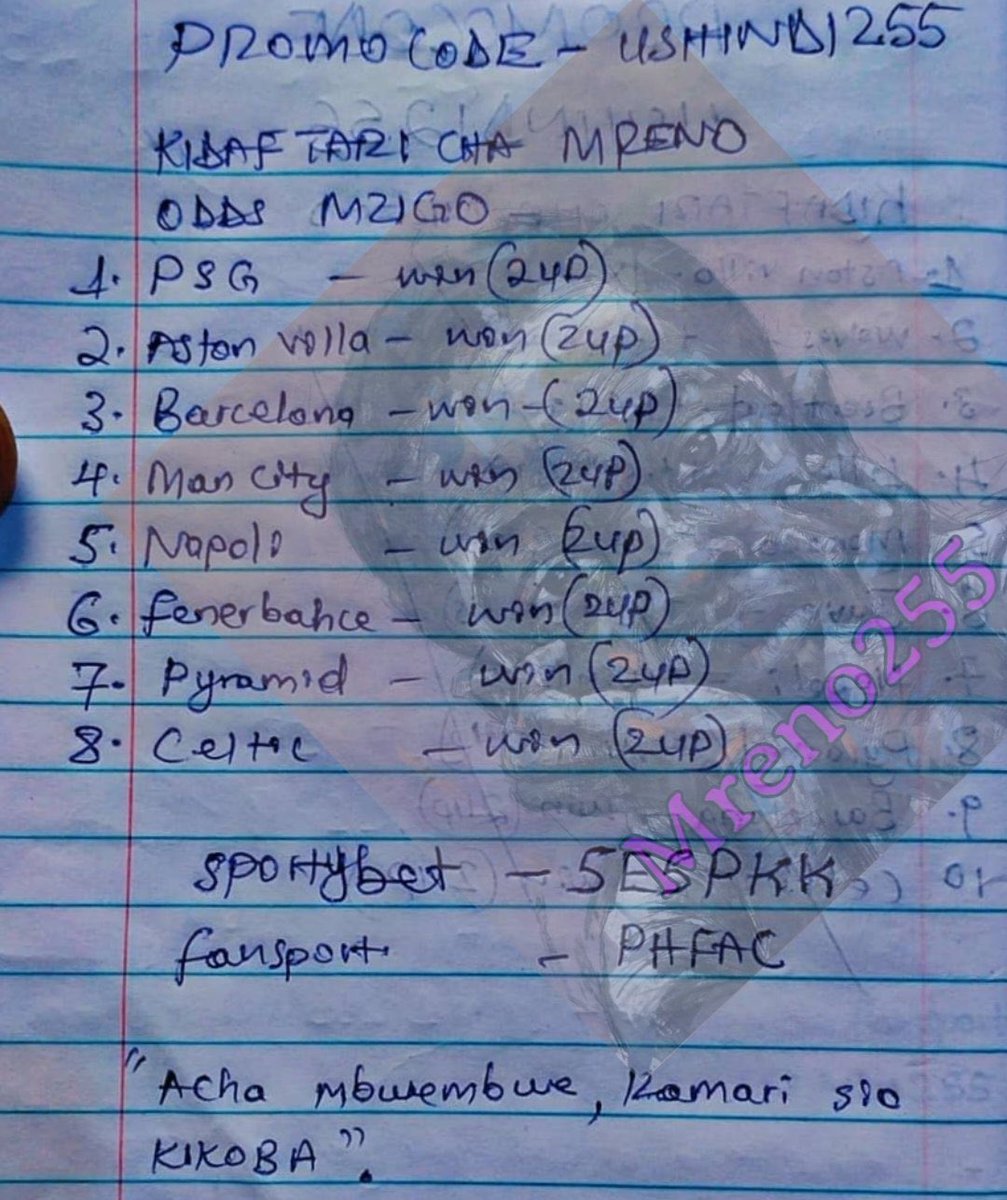 PROMO CODE - USHINDI255
KIDAFTARI CHA MRENO
ODDS MZIGO
1. PSG - win (2up)
2. Aston villa - win (2up)
3. Barcelona - win - (2up)
4. Man city - win (2up)
5. Napoli - win (2up)
6. fenerbahce - win (2up)
7. Pyramid - win (2up)
8. Celtic - win (2up)
Mreno255
sportybet - SESPKK
fansport - PHFAC
"Acha mbwembwe, Kamari sio
KIKOBA".